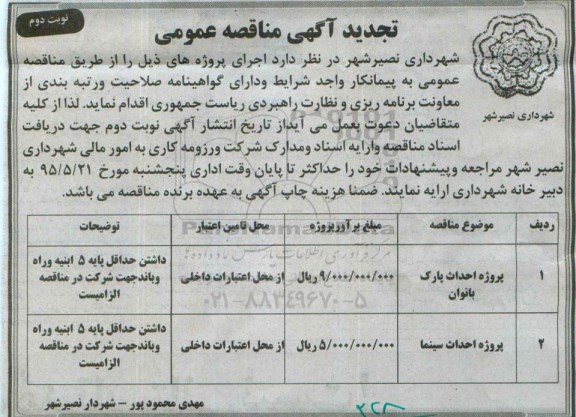 نوبت دوم
تجدید آگهی مناقصه عمومی
شهرداری نصیرشهر
شهرداری نصیرشهر در نظر دارد اجرای پروژه های ذیل را از طریق مناقصه
عمومی به پیمانکار واجد شرایط ودارای گواهینامه صلاحیت ورتبه بندی از
معاونت برنامه ریزی و نظارت راهبردی ریاست جمهوری اقدام نماید. لذا از کلیه
متقاضیان دعوت بعمل می آیداز تاریخ انتشار آگهی نوبت دوم جهت دریافت
اسناد مناقصه وارایه اسناد ومدارک شرکت ورزومه کاری به امور مالی شهرداری
نصیر شهر مراجعه وپیشنهادات خود را حداکثر تا پایان وقت اداری پنجشنبه مورخ ۹۵/۵/۲۱ به
دبیر خانه شهرداری ارایه نمایند. ضمنا هزینه چاپ آگهی به عهده برنده مناقصه می باشد.
ردیف موضوع مناقصه مبلغ برآوردپروژه محل تامین اعتبار توضیحات
۱ پروژه احداث پارک بانوان ۹/۰۰۰/۰۰۰/۰۰۰ ریال از محل اعتبارات داخلی داشتن حداقل پایه ۵ ابنیه وراه وباندجهت شرکت در مناقصه الزامیست
۲ پروژه احداث سینما ۵/۰۰۰/۰۰۰/۰۰۰ ریال از محل اعتبارات داخلی داشتن حداقل پایه ۵ ابنیه وراه وباندجهت شرکت در مناقصه الزامیست
مهدی محمود پور – شهردار نصیرشهر
۰۲۱-۸۸۳۴۹۶۷۰-۵